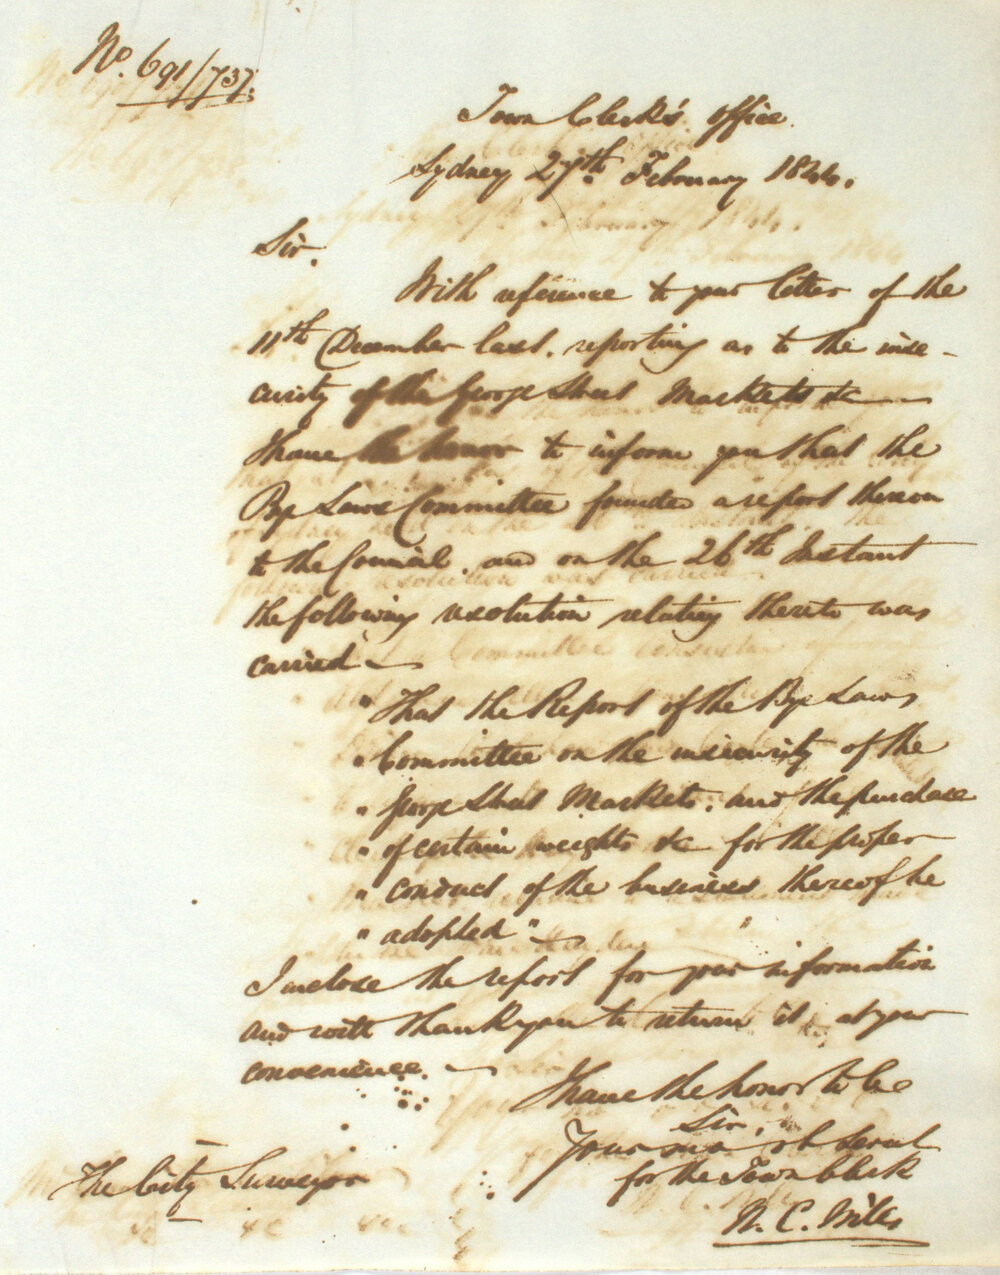 No. 691/737.
Town Clerk's Office
Sydney 27th February 1844.
Sir.
With reference to your letter of the
11th December last. reporting as to the inse-
curity of the George Street Markets &c
I have the honor to inform you that the
Bye Laws Committee founded a report thereon
to the Council. and on the 26th Instant
the following resolution relating thereto was
carried
"That the Report of the Bye Laws
"Committee on the insecurity of the
"George Street Markets. and the purchase
"of certain weights &c for the proper
"conduct of the business thereof be
"adopted"
I inclose the report for your information
and will thank you to return it at your
convenience.
I have the honor to be
Sir,
Your mo obt Servt
for the Town Clerk
The City Surveyor
&c &c &c